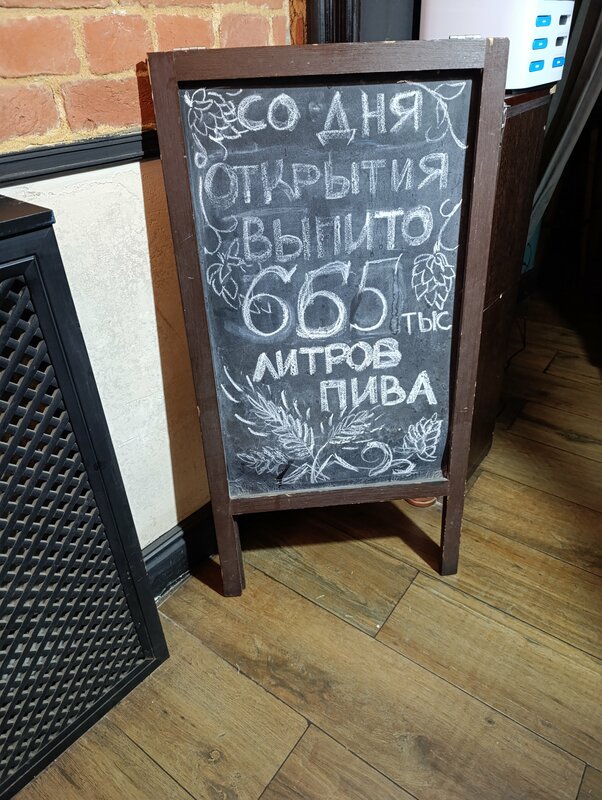 СО ДНЯ
ОТКРЫТИЯ
ВЫПИТО
665 ТЫС
ЛИТРОВ
ПИВА